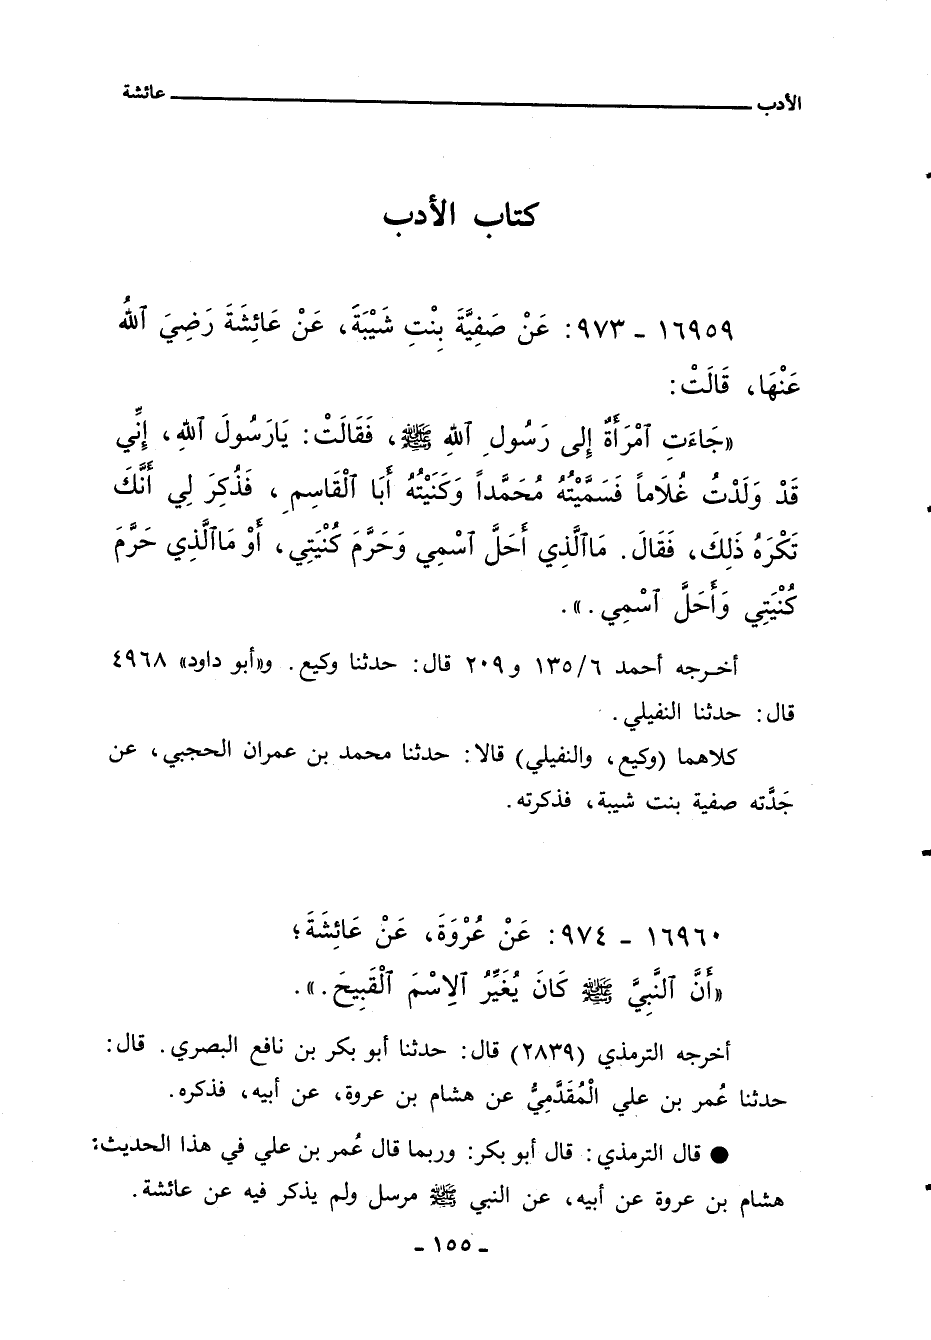 الأدب ــــــ عائشة
كتاب الأدب
١٦٩٥٩ - ٩٧٣: عَنْ صَفِيَّةَ بِنْتِ شَيْبَةَ، عَنْ عَائِشَةَ رَضِيَ ٱللهُ
عَنْهَا، قَالَتْ:
«جَاءَتِ ٱمْرَأَةٌ إِلى رَسُولِ ٱللهِ ﷺ، فَقَالَتْ: يَارَسُولَ ٱللهِ، إِنِّي
قَدْ وَلَدْتُ غُلَاماً فَسَمَّيْتُهُ مُحَمَّداً وَكَنَيْتُهُ أَبَا ٱلْقَاسِمِ، فَذُكِرَ لِي أَنَّكَ
تَكْرَهُ ذَلِكَ، فَقَالَ. مَاٱلَّذِي أَحَلَّ ٱسْمِي وَحَرَّمَ كُنْيَتِي، أَوْ مَاٱلَّذِي حَرَّمَ
كُنْيَتِي وَأَحَلَّ ٱسْمِي.».
أخرجه أحمد ١٣٥/٦ و٢٠٩ قال: حدثنا وكيع. و«أبو داود» ٤٩٦٨
قال: حدثنا النفيلي.
كلاهما (وكيع، والنفيلي) قالا: حدثنا محمد بن عمران الحجبي، عن
جَدَّته صفية بنت شيبة، فذكرته.
١٦٩٦٠ - ٩٧٤: عَنْ عُرْوَةَ، عَنْ عَائِشَةَ؛
«أَنَّ ٱلنَّبِيَّ ﷺ كَانَ يُغَيِّرُ ٱلِاسْمَ ٱلْقَبِيحَ.».
أخرجه الترمذي (٢٨٣٩) قال: حدثنا أبو بكر بن نافع البصري. قال:
حدثنا عُمر بن علي الْمُقَدَّمِيُّ عن هشام بن عروة، عن أبيه، فذكره.
● قال الترمذي: قال أبو بكر: وربما قال عُمر بن علي في هذا الحديث:
هشام بن عروة عن أبيه، عن النبي ﷺ مرسل ولم يذكر فيه عن عائشة.
- ١٥٥ -